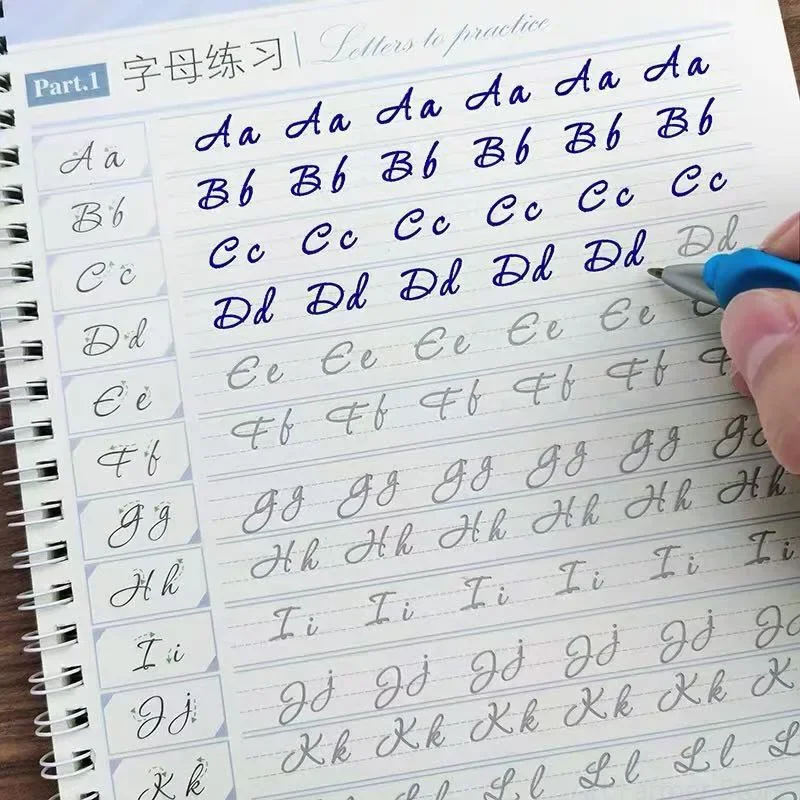 Part.1 字母练习 Letters to practice
Aa Aa Aa Aa Aa Aa Aa
Bb Bb Bb Bb Bb Bb Bb
Cc Cc Cc Cc Cc Cc Cc
Dd Dd Dd Dd Dd Dd Dd
Ee Ee Ee Ee Ee Ee
Ff Ff Ff Ff Ff Ff
Gg Gg Gg Gg Gg Gg Gg
Hh Hh Hh Hh Hh Hh Hh
Ii Ii Ii Ii Ii Ii Ii
Jj Jj Jj Jj Jj Jj J
Kk Kk Kk Kk Kk Kk K
Ll Ll Ll Ll L